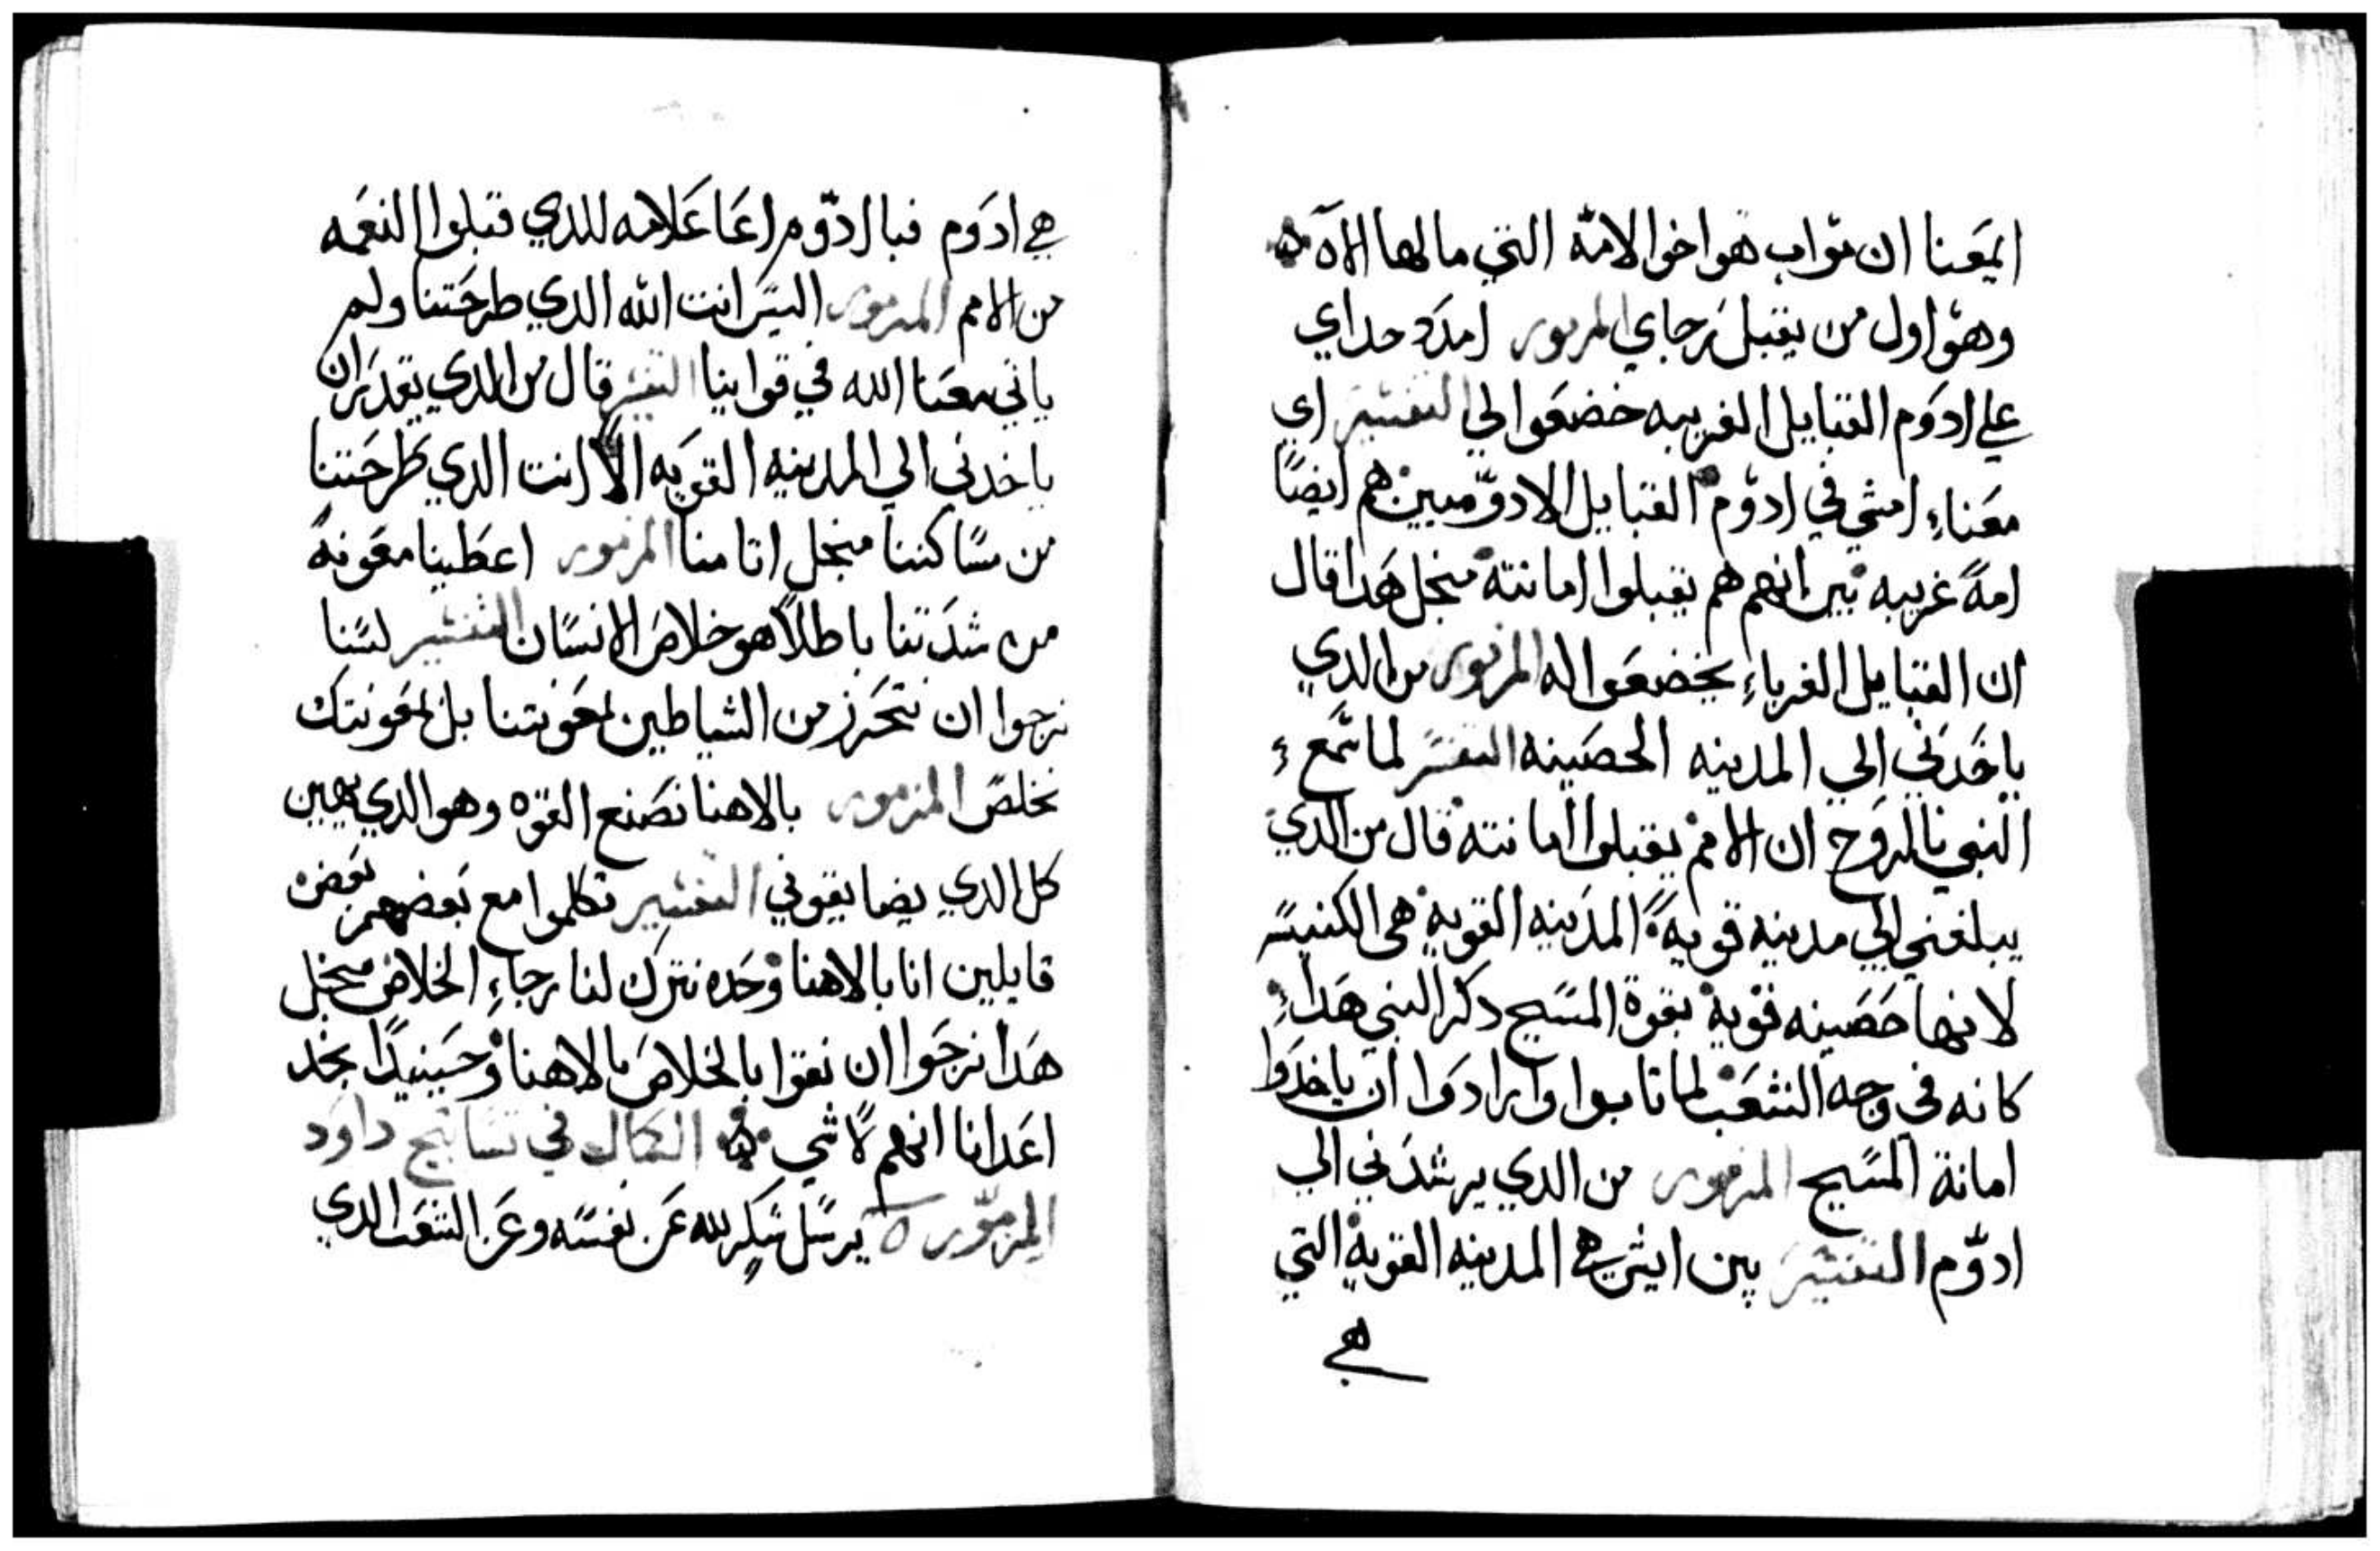 ايمعنا ان مواب هوا خوا الامه التي ما لها الاه
وهوا اول من يقبل رجاي المزمور امدد حداي
علي ادوم القبايل الغريبه خضعوا لي التفسير اي
معناء امشي في ادوم القبايل الادوميين هم ايضًا
امةً غريبه بين انهم هم يقبلوا امانته منجل هدا قال
ان القبايل الغرباء يخضعوا له المزمور من الدي
ياخدني الي المدينه الحصينه التفسير لما سمع
النبي بالروح ان الامم يقبلوا امانته قال من الدي
يبلغني الي مدينه قويةً المدينه القوية هي الكنيسه
لانها حصينه قوية بقوة المسيح دكر النبي هداء
كانه في وجه الشعب لما تابوا وارادوا ان ياخدوا
امانة المسيح المزمور من الدي يرشدني الي
ادوم التفسير بين ايش هي المدينه القوية التي
هي
هي ادوم فبا ادوم اعا علامه للدي قبلوا النعمه
من الامم المزمور اليس انت الله الدي طرحتنا ولم
ياتي معنا الله في قواينا التفسير قال من الدي يقدر ان
ياخدني الي المدينه القويه الا انت الدي طرحتنا
من مساكننا منجل اتامنا المزمور اعطينا معونةً
من شدتنا باطلًا هو خلاص الانسان التفسير لسنا
نرجوا ان نتحرز من الشياطين بمعونتنا بل بمعونتك
نخلص المزمور بالاهنا نصنع القوه وهو الدي يهين
كل الدي يضايقوني التفسير تكلموا مع بعضهم بعض
قايلين انا بالاهنا وحده نترك لنا رجاء الخلاص منجل
هدا نرجوا ان نقوا بالخلاص بالاهنا وحينيدًا نجد
اعدانا انهم لاشي الكمال في تسابيح داود
المزمور ٥ يرسل شكر لله عن نفسه وعن الشعب الدي